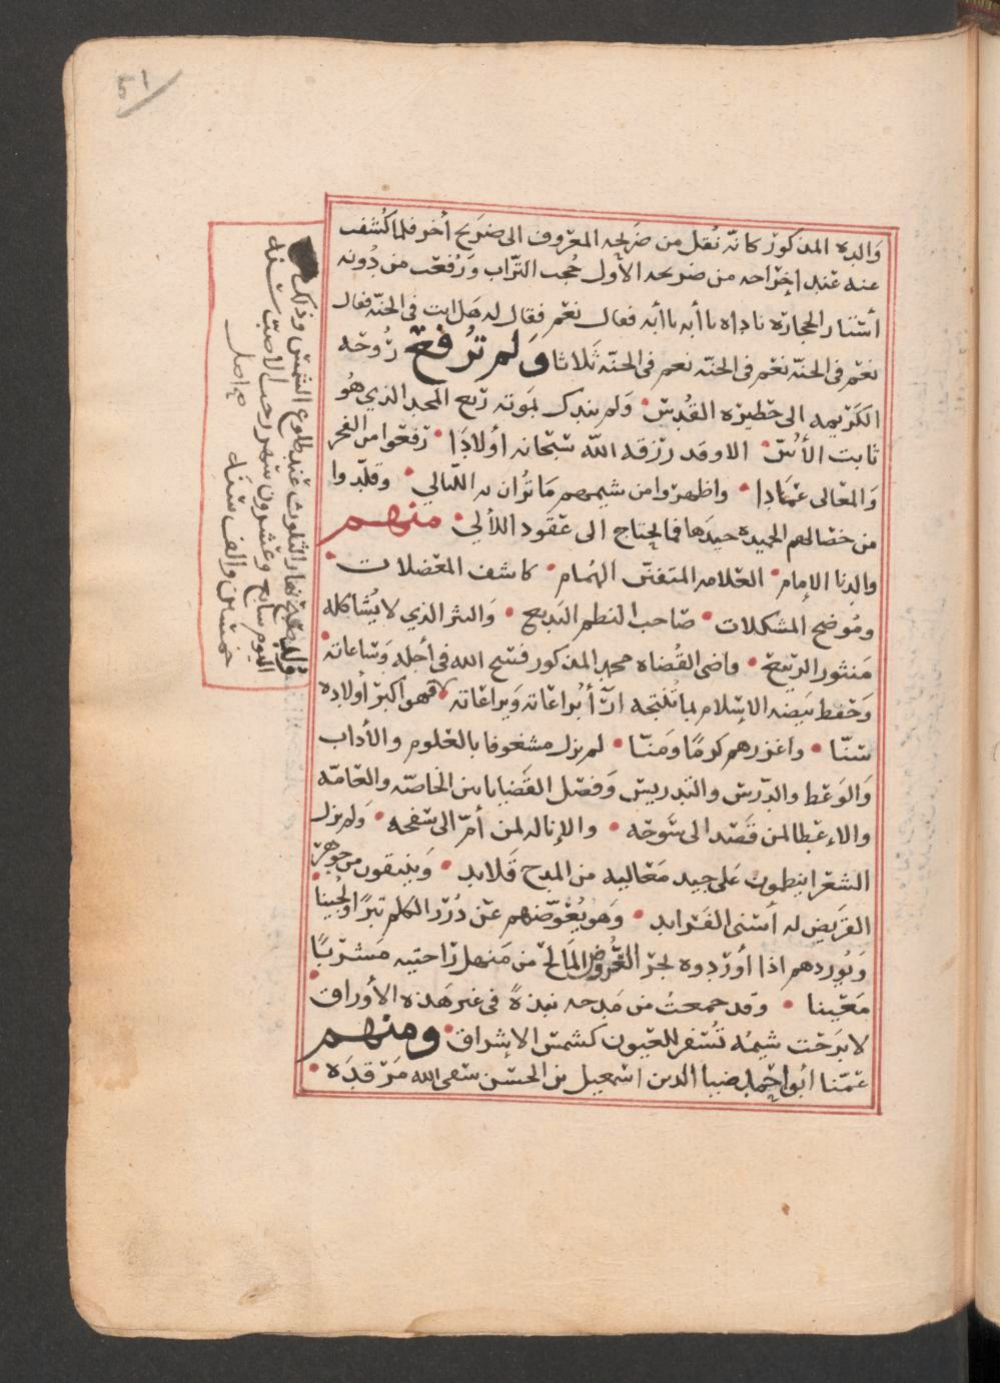 ٥١
والده المذكور كانه نُقل من ضريحه المعروف الى ضريح أخر فلما كُشف
عنه عند اخراجه من ضريحه الأول حُجب التراب ورُفعت من دُونه
أستار الحجارة ناداه يا أبه يا أبه فقال نعم فقال له هل انت في الجنة فقال
نعم في الجنة نعم في الجنة نعم في الجنة ثلاثا ولم تُرفع رُوحه
الكريمه الى حظيرة القُدس • ولم يندك بموته ربع المجد الذي هُو
ثابت الأُسّ • الا وقد رزقه الله سبحانه أولادًا • رفعوا من الفخر
والمعالى عمادا • واظهروا من شيمهم ما تُزان به الليالي • وقلّدوا
من خصالهم الحميدة جيدها فما يحتاج الى عقود اللألي • منهم
والدنا الإمام • العلامه المتفنن الهُمام • كاشف المعضلات •
ومُوضح المشكلات • صاحب النظم البديع • والنثر الذي لا يُشاكله
منثور الربيع • قاضى القُضاه محمد المذكور فسح الله في أجله وساعاته •
وحفظ بيضه الاسلام بما تُنتجه اراأ يراعاته وبراعاته فهو أكبر أولاده
سنّا • واغزرهم كرمًا ومنّا • لم يزل مشغوفا بالعلوم والأداب
والوعظ والدرس والتدريس وفصل القضايا بين الخاصّه والعامّه
والاءعطا لمن قصد الى سوحه • والإناله لمن أمّ الى سفحه • ولم يزل
الشعرا ينيطون على جيد معاليه من المدح قلايد • وينتقون من جوهر
القريض له أسنى الفرايد • وهو يُعوّضهم عن دُرر الكلم تبرًا ولُجينا
ويُوردهم اذا أوردوه لجز العُروض المالح من منهل راحتيه مشربًا
معينا • وقد جمعتُ من مدحه نبذةً في غير هذه الأوراق
لا برحت شيمُه تُسفر للعيون كشمس الإشراق • ومنهم
عمّنا ابُو احمد ضيا الدين اسمعيل بن الحسن سقى الله مرقده •
نهار الثلوث عند طلوع الشمس وذلك
اليوم سابع وعشرون شهر رجب الاصبّ سنه
خمسين والف سنه
صح اصل